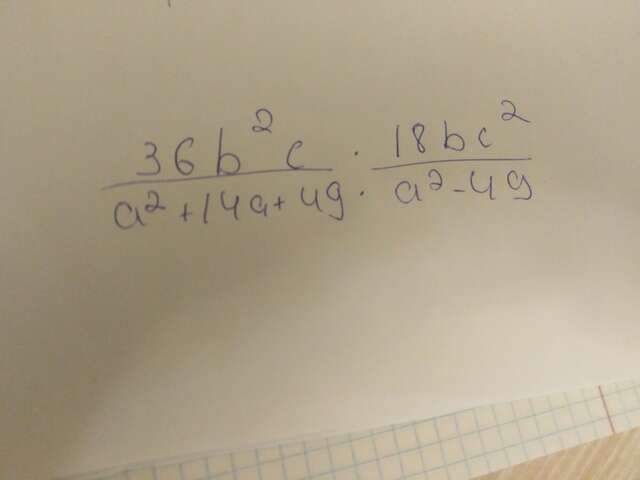 36b²c / a²+14a+49 : 18bc² / a²-49